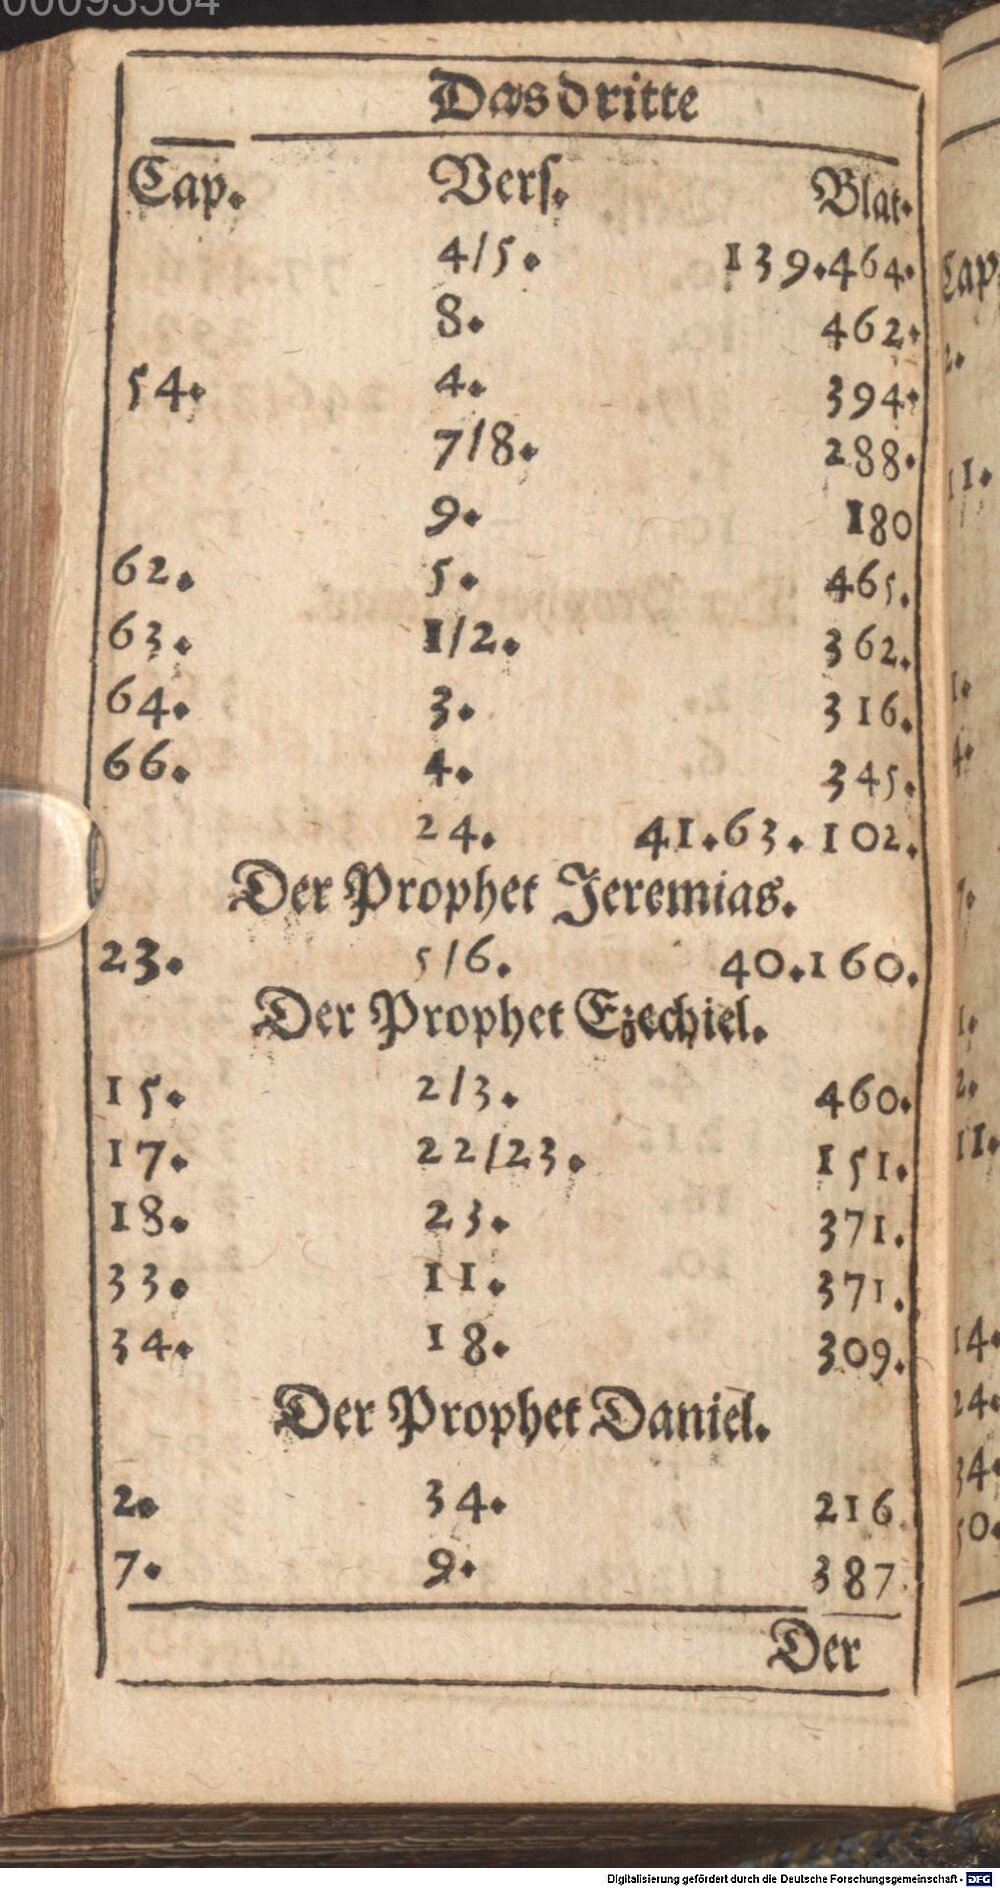 00093564
Das dritte
Cap. Vers. Blat.
4/5. 139.464.
8. 462.
54. 4. 394.
7/8. 288.
9. 180
62. 5. 465.
63. 1/2. 362.
64. 3. 316.
66. 4. 345.
24. 41.63.102.
Der Prophet Jeremias.
23. 5/6. 40.160.
Der Prophet Ezechiel.
15. 2/3. 460.
17. 22/23. 151.
18. 23. 371.
33. 11. 371.
34. 18. 309.
Der Prophet Daniel.
2. 34. 216.
7. 9. 387.
Der
Cap
2.
11.
1.
4.
7.
1.
2.
11.
14.
24.
34.
Digitalisierung gefördert durch die Deutsche Forschungsgemeinschaft - DFG